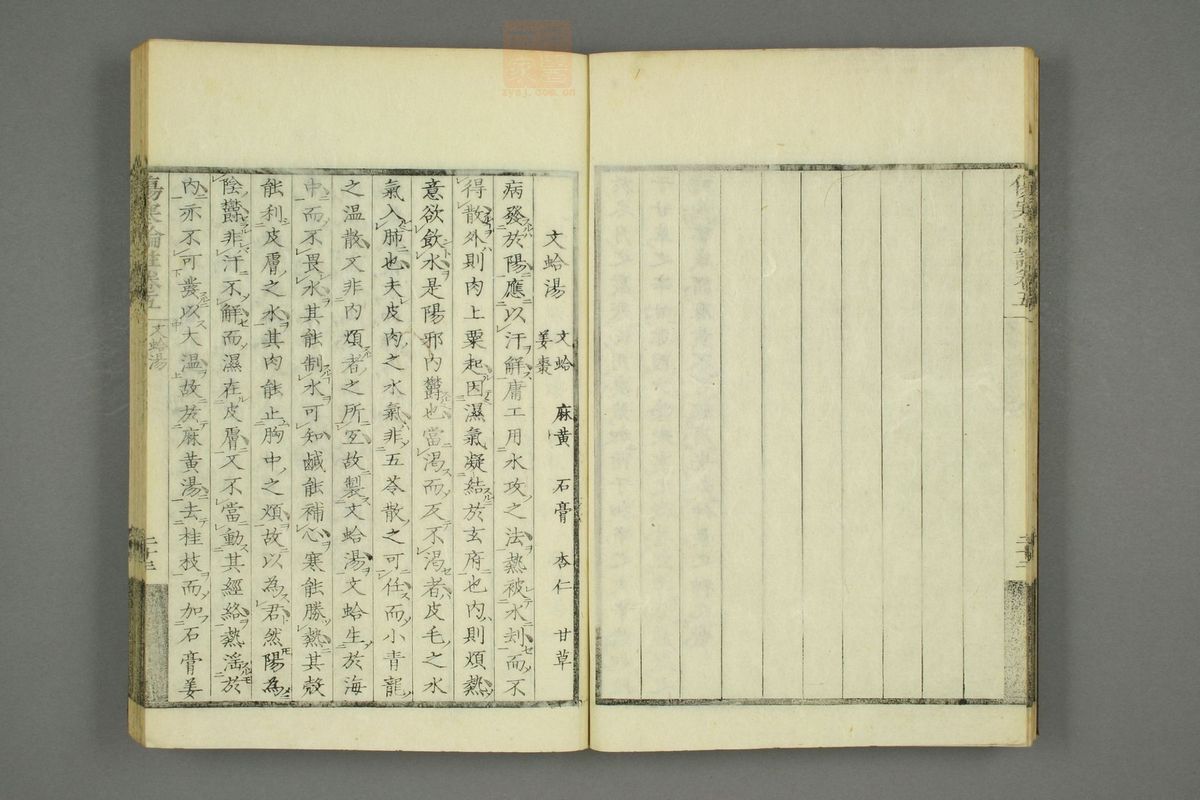 文蛤湯　文蛤　麻黄　石膏　杏仁　甘草
姜棗
病發於陽應以汗解庸工用水攻之法熱被水刦而不
得散外則肉上粟起因濕氣凝結於玄府也内則煩熱
意欲飲水是陽邪内欝也當渇而反不渇者皮毛之水
氣入肺也夫皮肉之水氣非五苓散之可任而小青龍
之温散又非内煩者之所宐故製文蛤湯文蛤生於海
中而不畏水其能制水可知鹹能補心寒能勝熱其殻
能利皮膚之水其肉能止胸中之煩故以為君然陽為
陰欝非汗不解而濕在皮膚又不當動其經絡熱滛於
内亦不可發以大温故於麻黄湯去桂枝而加石膏姜
文蛤湯